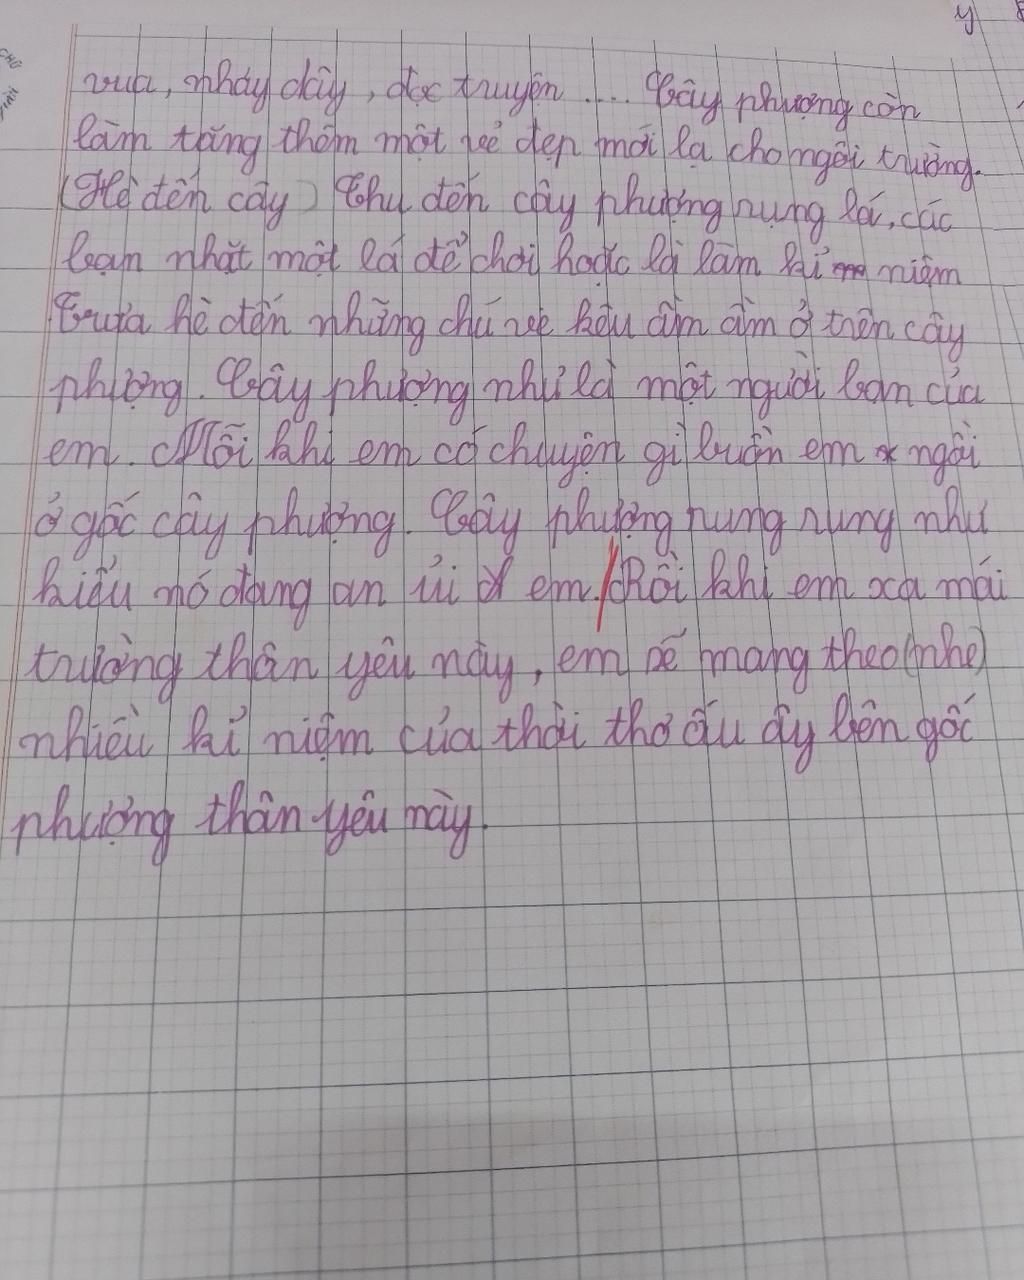 y
vua, nhảy dây, đọc truyện .... Cây phượng còn
làm tăng thêm một vẻ đẹp mới lạ cho ngôi trường.
(Hè đến cây) Thu đến cây phượng rụng lá, các
bạn nhặt một lá để chơi hoặc là làm kỉ niệm
Trưa hè đến những chú ve kêu ầm ầm ở trên cây
phượng. Cây phượng như là một người bạn của
em. Mỗi khi em có chuyện gì buồn em ngồi
ở gốc cây phượng. Cây phượng rung rung như
kiểu nó đang an ủi em. Rồi khi em xa mái
trường thân yêu này, em sẽ mang theo (nhe)
nhiều kỉ niệm của thời thơ ấu ấy bên gốc
phượng thân yêu này.